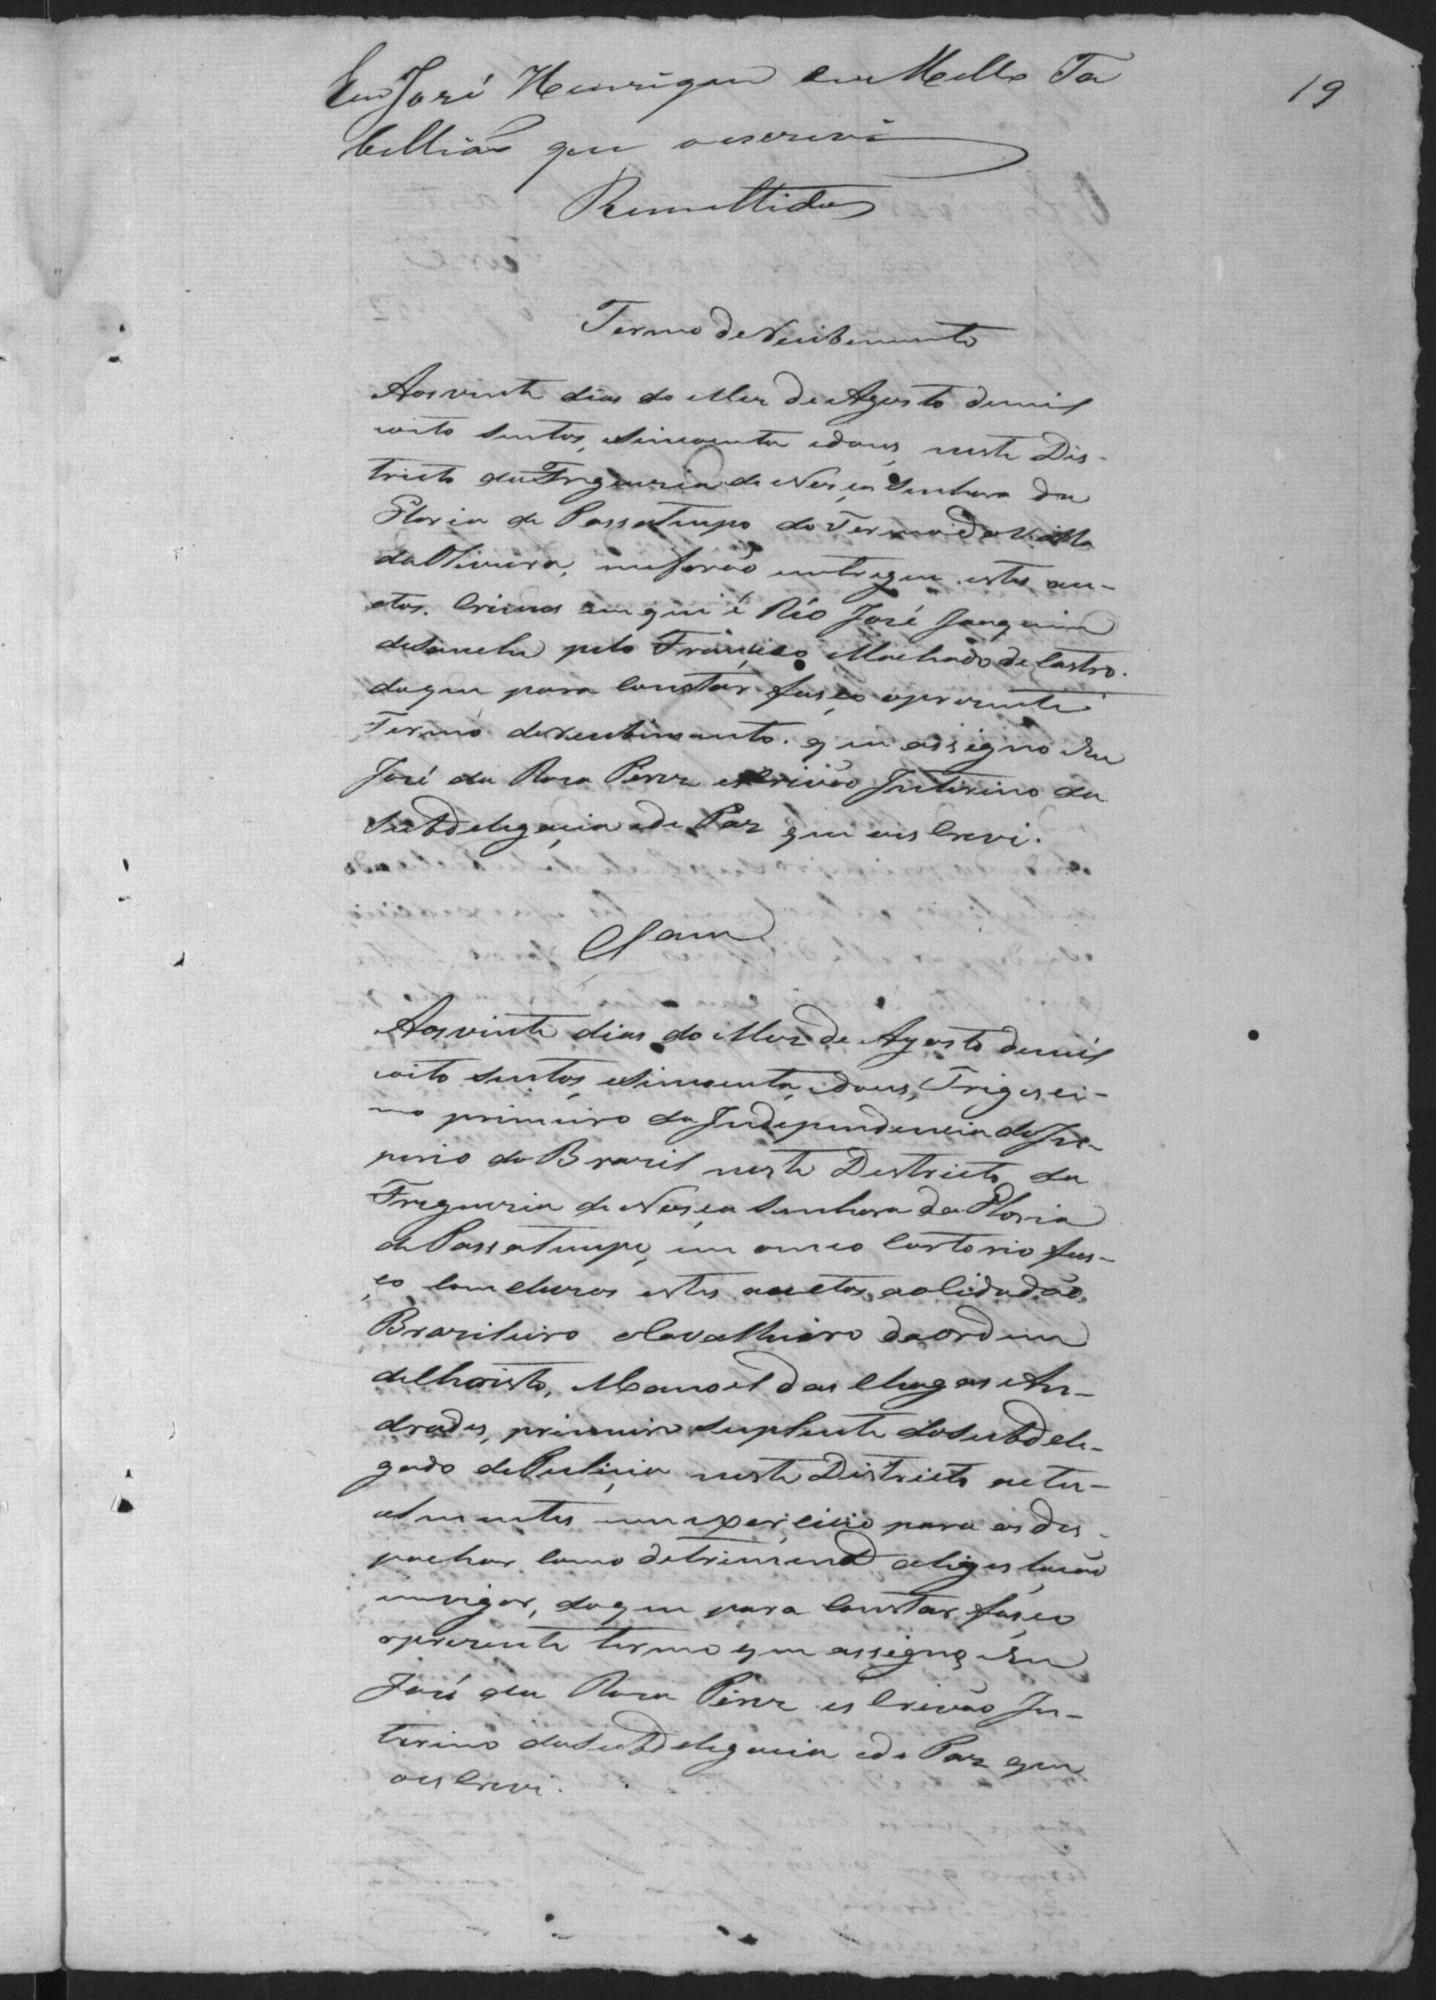 19
Eu José Henriques de Mello Ta
bellião que o escrevi
Remettidos
Termo de Recibimento
Aos vinte dias do Mez de Agosto de mil
oito sentos, e sincoenta e dous, neste Dis-
tricto da Freguezia de Nosça Senhora da
Gloria de Passatempo do Termo da Villa
da Oliveira, me forão entregue estes au-
ctos Crimes em que é Réo José Joaquim
de pelo Françisco Machado de Castro.
do que para Constar fasço o prezente
Termo de recibimento. que assigno Eu
José da Roza Perez escrivão Interino da
Subdelegaçia e de Paz que o escrevi.
Clam
Aos vinte dias do Mez de Agosto de mil
oito sentos, e sincoenta, e dous, Trigesi-
mo primeiro da Independencia do Im-
perio do Brazil neste Destricto da
Freguezia de Nosça Senhora da Gloria
de Passatempo, em o meo Cartorio fas-
ço Concluzos estes auctos, ao Cidadão
Brazileiro e Cavalheiro da Ordem
de Christo, Manoel das Chagas An-
drades, primeiro Suplente do Subdele-
gado de Puliçia neste Districto actu-
almentes em exerçicio para os des-
pachar como detremina a ligeslação
em vigor, do que para Constar fasço
o prezente termo que assigno Eu
José da Roza Perez es Crivão In-
terino da Subdelegacia e de Paz que
o es Crevi.